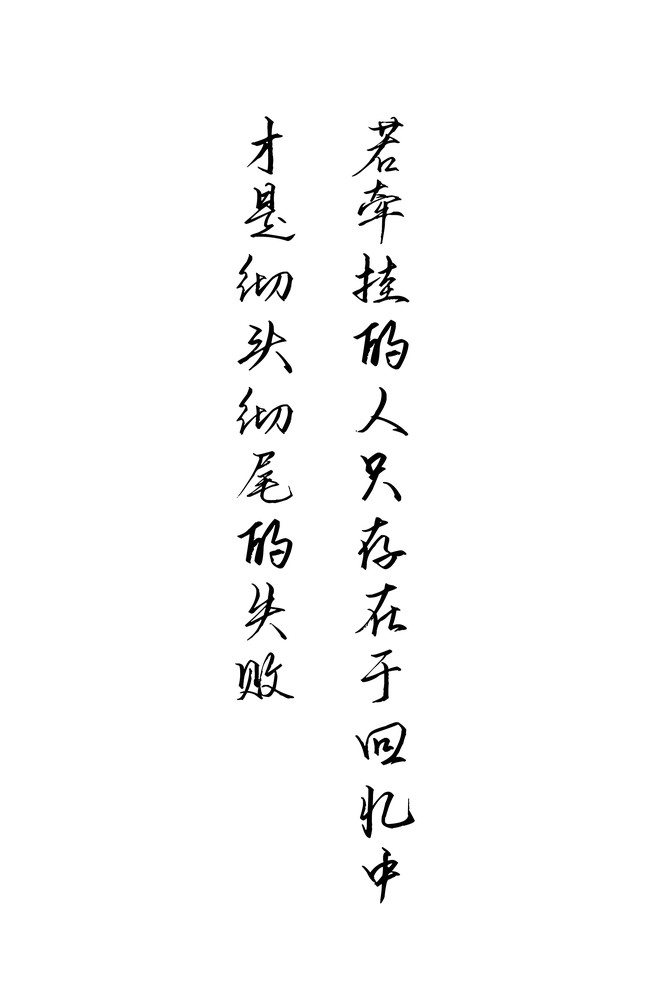 若牵挂的人只存在于回忆中
才是彻头彻尾的失败